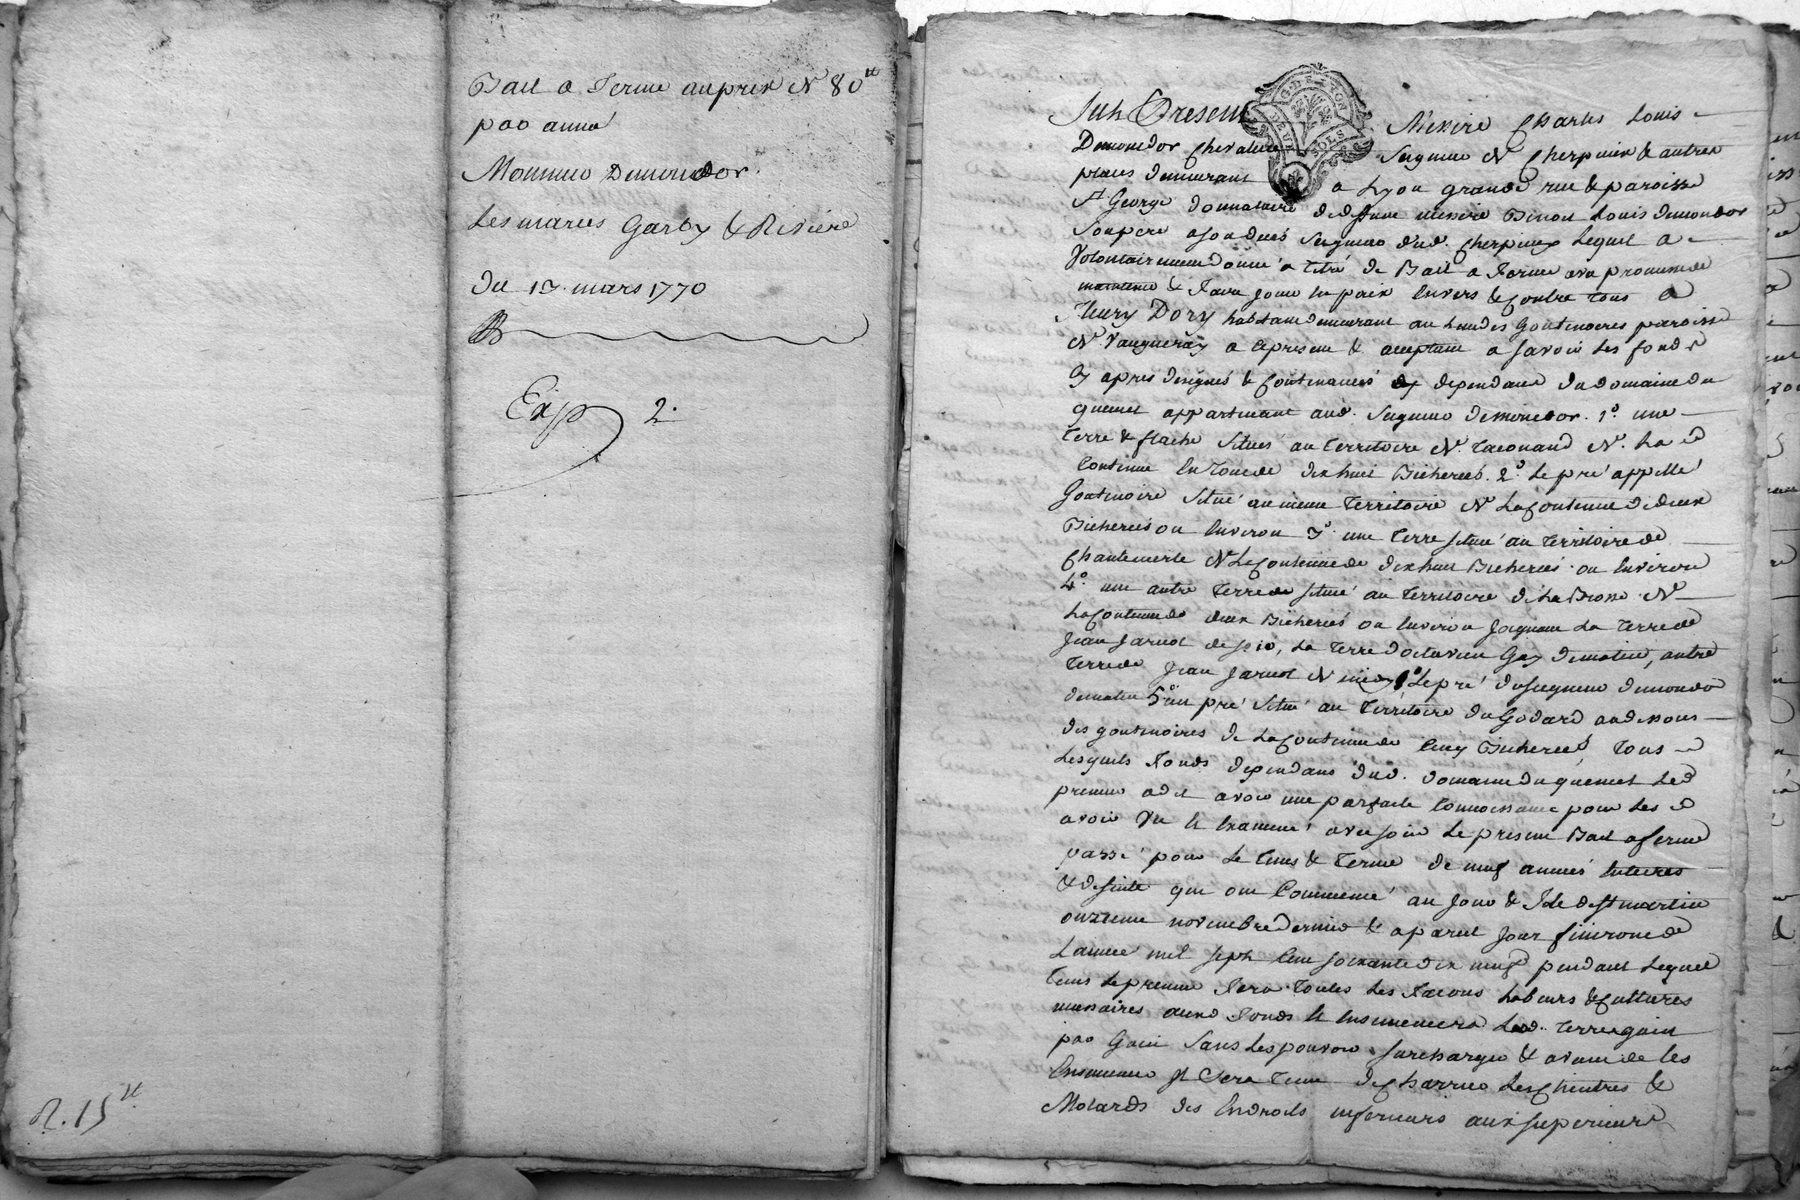 Bail a ferme au prix de 80lt
par année
Monsieur Demondor.
Les mariés Garby & Riviere
Du 15 mars 1770
Exp 2.
R. 15lt
G. DE LYON
DEUX SOLS
Fut Present Messire Charles Louis
Demondor Chevalier Seigneur de Cherpieux & autres
places demeurant a Lyon grande rue & paroisse
St George donnataire de deffunt messire Benoit Louis demondor
son pere a son deces Seigneur dud. Cherpieux Lequel a
Volontairement donné a titre de Bail a ferme avec promesse de
maintenir & faire jouir en paix Envers & Contre tous a
fleury Dory habitant demeurant au lieu des Goutenoires paroisse
de Vaugneray a cepresent & acceptant a savoir Les fonds
cy apres designés & Continances dependant du domaine du
quemet appartenant aud. Seigneur demondor. 1o. une
terre & flache Situés au territoire de de La
Contenue Entour de dix huit Bicherées. 2o Le pré appellé
Goutenoire Situé au meme territoire de La Contenue de deux
Bicherées ou Environ 3o. une terre situé au territoire de
Chantemerle de La Contenue de dix huit Bicherées ou Environ
4o. une autre terre située au territoire de La Brosse de
La Contenue de deux Bicherées ou Environ joignant La terre de
Jean Jarnot de soir, La terre d'octavien Gay de matin, autre
terre de Jean Jarnot de Le pré du Seigneur demondor
de matin 5o un pré Situé au territoire du Godard au dessous
des goutenoires de La Contenue de Cinq Bicherées tous
Lesquels fonds dependans dud. domaine du quemet Led
preneur a dit avoir une parfaite Connoissance pour Les
avoir Vu & Examiné avec soin Le present Bail a ferme
passé pour Le tems & terme de neuf années entieres
& de suite qui ont Commencé au jour & fete de St martin
onzieme novembre dernier & a pareil jour finiront de
L'année mil sept Cent soixante dix neuf pendant Lequel
tems Le preneur fera toutes Les facons Labeurs & Cultures
necessaires auxd fonds & Ensemencera Lesd. terres gain
par Gain Sans Les pouvoir surcharger & avant de les
Ensemencer il Sera tenu de Charrier Les Cheintres &
Molards des Endroits inferieurs aux superieurs